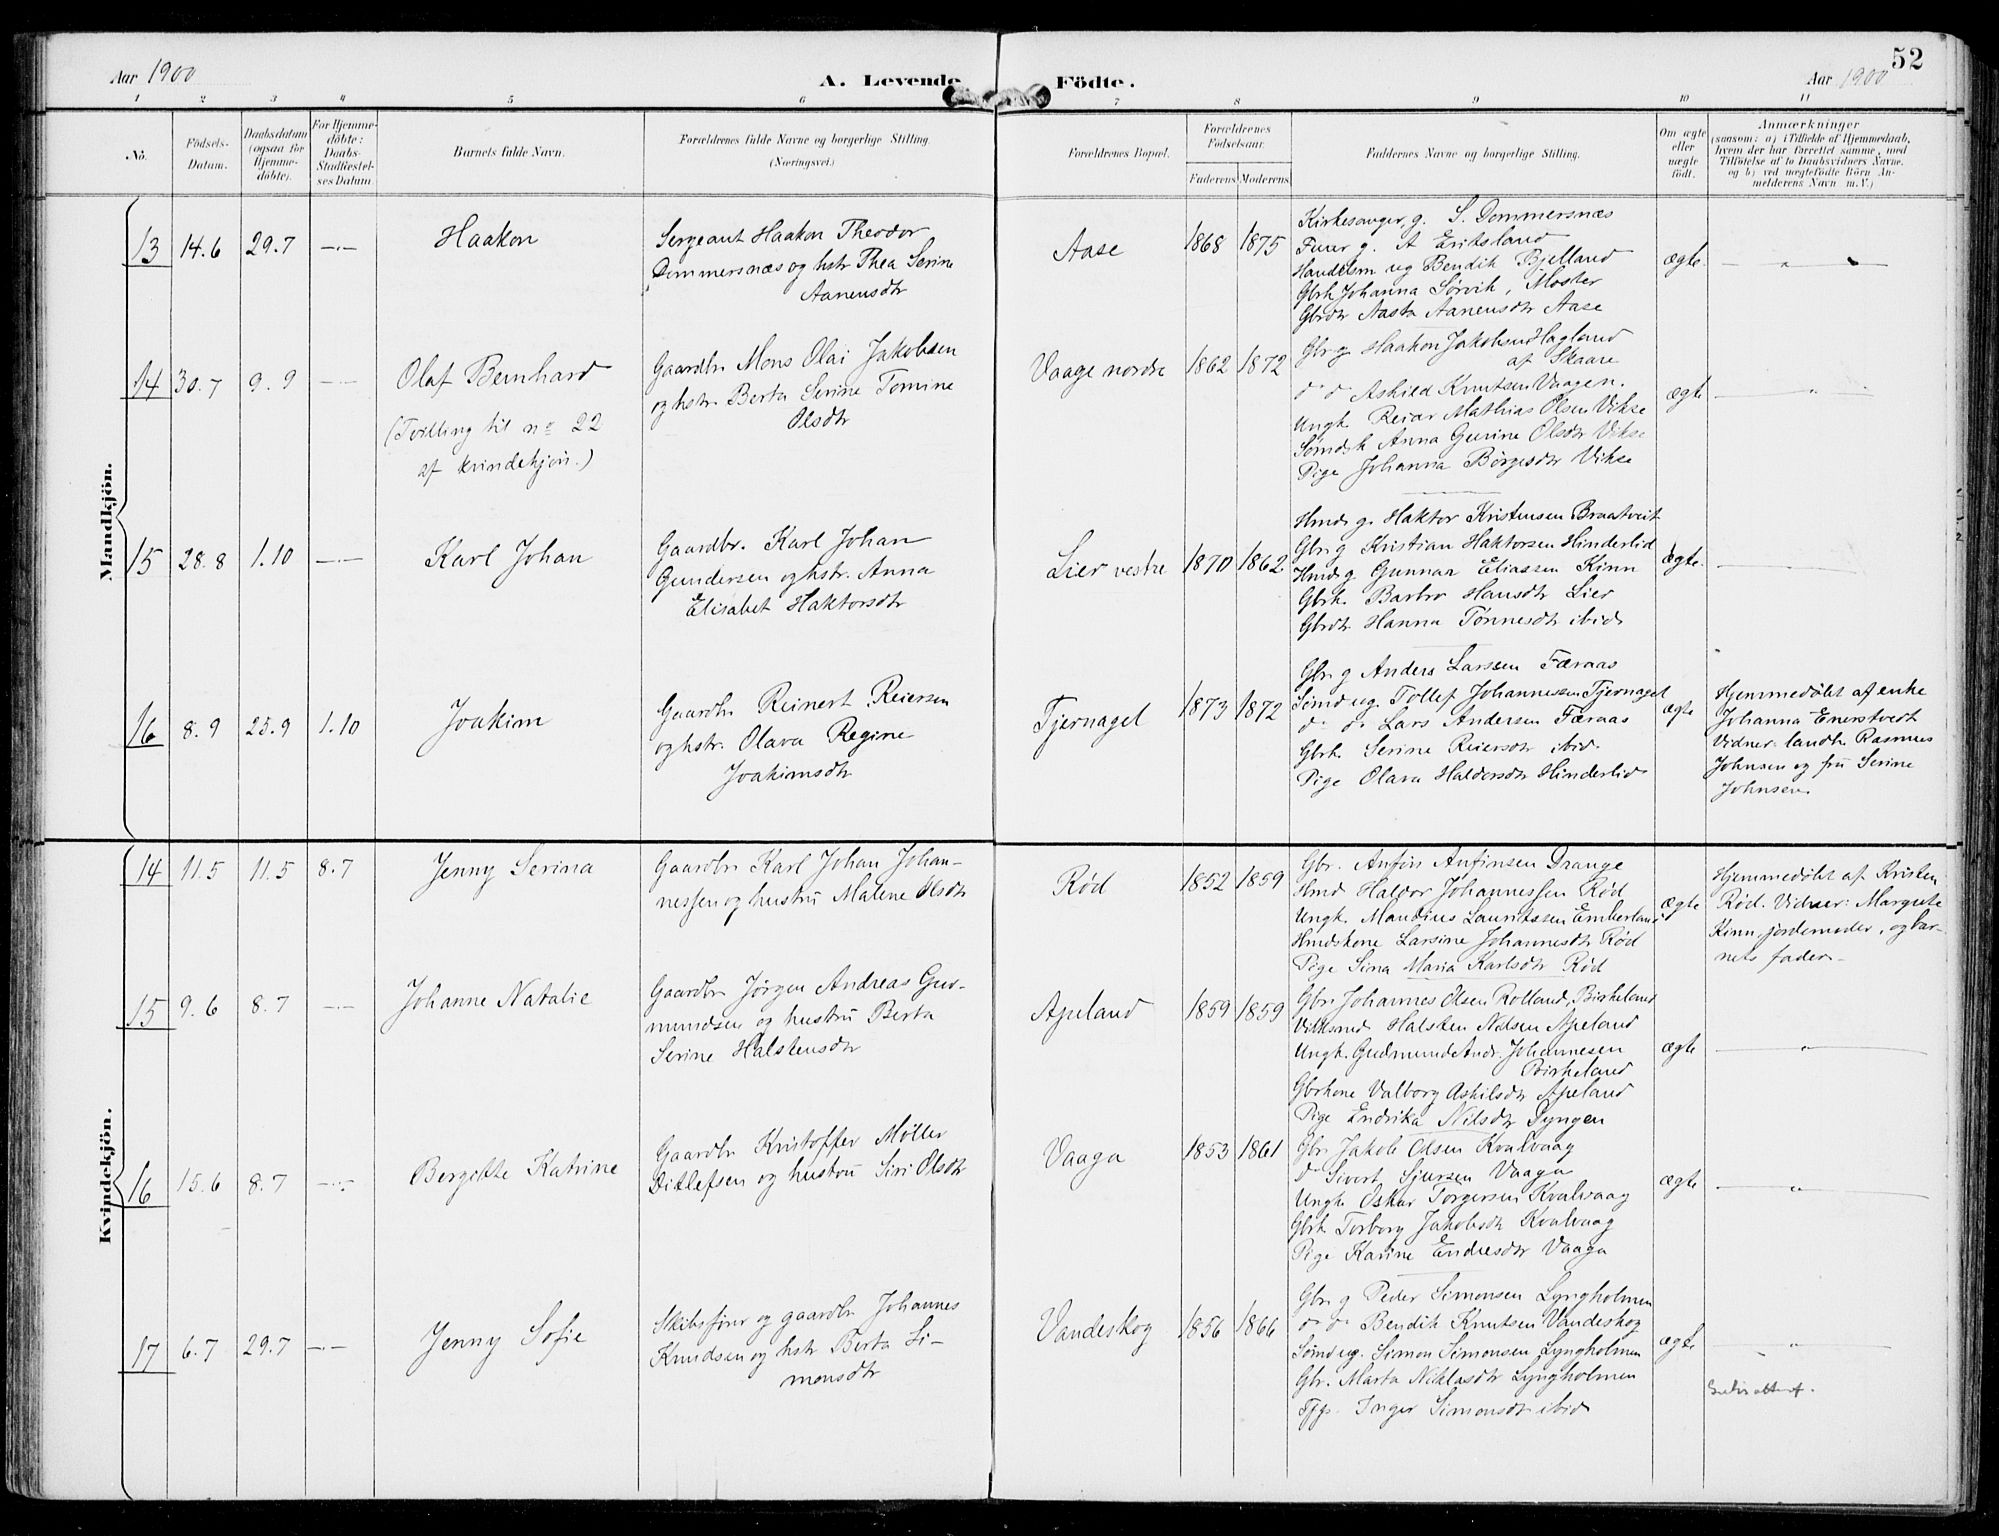 Aar 1900
A. Levende
Födte.
Aar 1900
52
1 2 3 4 5 6 7 8 9 10 11
No.
Födsels-
Datum.
Daabsdatum
(ogsaa for
Hjemme-
döbte).
For Hjemme-
döbte:
Daabs-
Stadfæstel-
ses Datum.
Barnets fulde Navn.
Forældrenes fulde Navne og borgerlige Stilling.
(Næringsvei.)
Forældrenes Bopæl.
Forældrenes
Födselsaar.
Faderens
Moderens
Faddernes Navne og borgerlige Stilling.
Om ægte
eller
uægte
födt.
Anmærkninger
(saasom: a) i Tilfælde af Hjemmedaab,
hvem der har forrettet samme, med
Tilföielse af to Daabsvidners Navne.
og b) ved uægtefödte Börn An-
melderens Navn m. V.)
Mandkjön.
13
14.6
29.7
—·—
Haakon
Sergeant Haakon Theodor
Dommersnæs og hstr Thea Serine
Aanensdtr
Aase
1868
1875
Kirkesanger g. S. Dommersnæs
Furer g. A Eritsland
Handelsm ug Bendik Bjelland
Gbrk Johanna Sørvik, Moster
Gbrdtr Aasta Aanensdtr Aase
ægte
— " —
14
30.7
9.9
—·—
Olaf Bernhard
(Tvilling til no 22
af kvindekjön.)
Gaardbr Mons Olai Jakobsen
og hstr. Berta Serine Tomine
Olsdtr
Vaage nordre
1862
1872
Gbr g Haakon Jakobsen Hagland
af Skaare
do do Askild Knutsen Vaagen.
Ungk. Reiar Mathias Olsen Vikse
Sømdsk Anna Gurine Olsdtr Vikse
Pige Johanna Børgesdtr Vikse
ægte
— " —
15
28.8
1.10
—·—
Karl Johan
Gaardbr. Karl Johan
Gundersen og hstr. Anna
Elisabet Haktorsdtr
Lier vestre
1870
1862
Hmd g. Haktor Kristensen Braatveit
Gbr. g Kristian Haktorsen Hinderlid
Hmd g Gunnar Eliassen Kinn
Gbrk. Barbro Hansdtr Lier
Gbrdtr Hanna Tønnesdtr ibid.
Ægte
16
8.9
25.9
1.10
Joakim
Gaardbr Reinert Reiersen
og hstr. Olava Regine
Joakimsdtr
Tjernagel
1873
1872
Gbr. g Anders Larssen Færaas
Sømd ug. Tollef Johannessen Tjernagel
do do Lars Andersen Færaas
Gbrk. Serine Reiersdtr ibid.
Pige Olava Haldorsdtr Hinderlid
ægte
Hjemmedöbt af enke
Johanna Enerstvedt
Vidner: landh. Rasmus
Johnsen og fru Serine
Johnsen.
Kvindekjön.
14
11.5
11.5
8.7
Jenny Serina
Gaardbr Karl Johan Johan-
nessen og hustru Malene Olsdtr
Rød
1852
1859
Gbr. Anfin Anfinsen Drange
Hmd Haldor Johannessen Rød
Ungk. Mandius Lauritssen Emberland
Hmdskone Larsine Johannesdtr Rød
Pige Sina Maria Karlsdtr Rød
ægte
Hjemmedöbt af Kristen
Rød. Vidner: Margrete
Kinn, jordemoder, og bar-
nets fader.
15
9.6
8.7
—·—
Johanne Natalie
Gaardbr Jørgen Andreas Gud-
mundsen og hustru Berta
Serine Halstensdtr
Apeland
1859
1859
Gbr. Johannes Olsen Rolland, Birkeland
Halsten Nilsen Apeland
Ungk. Gudmund Andr. Johannesen
Birkeland
Gbrkone Valborg Askilsdtr Apeland
Pige Endrika Nilsdtr Lyngen
ægte
— " —
16
15.6
8.7
—·—
Bergitte Katrine
Gaardbr Kristoffer Møller
Ditlefsen og hustru Siri Olsdtr
Vaaga
1853
1861
Gbr. Jakob Olsen Kvalvaag
do Sivert Sjursen Vaaga
Ungk Oskar Torgersen Kvalvaag
Gbrk Torborg Jakobsdtr Kvalvaag
Pige Karine Endresdtr Vaaga
ægte
— " —
17
6.7
29.7
—·—
Jenny Sofie
Skibsförer og gaardbr Johannes
Knudsen og hstr Berta Si-
monsdtr
Vandeskog
1856
1866
Gbr. g Peder Simonsen Lyngholmen
do do Bendik Knutsen Vandeskog
Sømd ug. Simon Simonsen Lyngholmen
Gbr. Marta Niklasdtr Lyngholmen
Inger Simonsdtr ibid
ægte
— " —